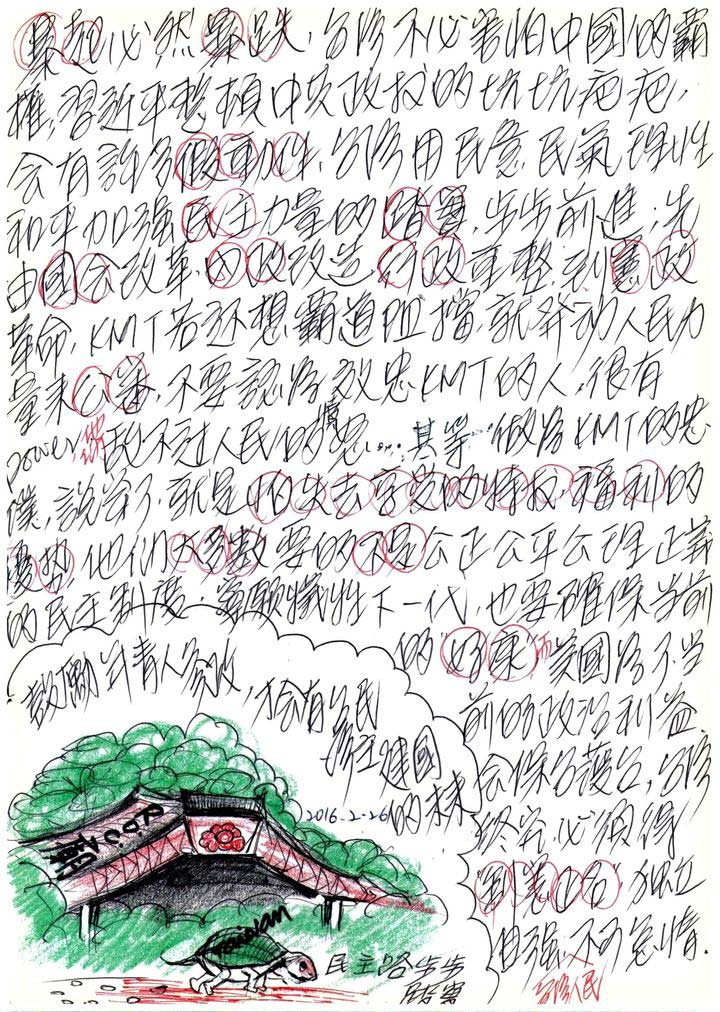 暴起必然暴跌,台灣不必害怕中國的霸
權,習近平整頓中央政权的坑坑疤疤,
会有許多假動作,台灣用民意民氣理性
和平加强民主力量的踏實,步步前進;先
由國会改革,內政改造,行政重整,到憲政
革命,KMT若还想霸道阻擋,就発动人民力
量来公審,不要認為效忠KMT的人,很有
power,敵不过人民的憤怒……其等 做為KMT的忠
僕,說穿了,就是怕失去享受的特权,福利的
優势,他們大多數要的不是公正公平公理正義
的民主制度;寧願犧牲下一代,也要確保当前
的"好康"而美國為了当
前的政治利益
会保台護台,台灣
終究必須得
独立
自强,不可怠惰.
台灣人民
鼓勵年青人參政,才会有台民
主建國
的未来
2016-2-26
Taiwan
民主路步步
踏實